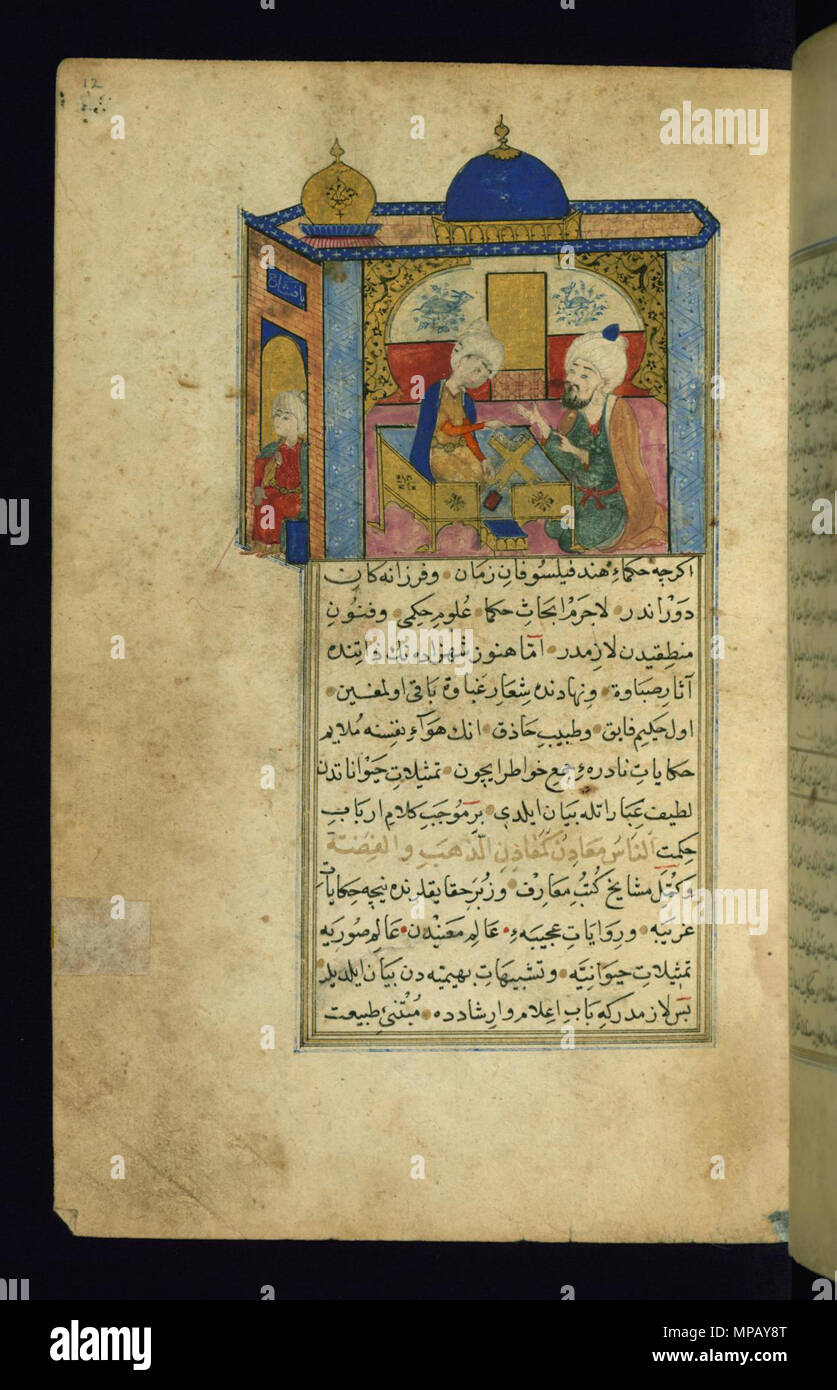 12
یا فتاح
اكرچه حكماءِ هند فیلسوفانِ زمان و فرزانه كان
دَوْراندر لاجرم ابحاثِ حكما علومِ حكمی و فنونِ
منطقیدن لازمدر امّا هنوز شهزاده نك ذاتنده
آثارِ صباوة و نهادنده شعارِ غباوة باقی اولمغین
اول حكیمِ فایق و طبیبِ حاذق انك هوآءِ نفسنه مُلایم
حكایاتِ نادره ءِ جمع خواطر ایچون تمثیلاتِ حَیْواناتدن
لطیف عِبارا تله بیان ایلدی بر مُوجَبِ كلامِ اربابِ
حِكمت اَلنّاسُ مَعادِنُ كَمَعَادِنِ الذَّهَبِ وَالفِضَّةِ
وَكُمَّلِ مشایخ كُتُبِ مَعارِف وَ زُبَرِ حقایقلرنده نیچه حِكایاتِ
غریبه و رِوایاتِ عجیبه ءِ عالمِ مَعنیدن عالمِ صوریه
تمثیلاتِ حیوانیّه و تشبیهاتِ بهیمیّه دن بیان ایلدیلر
پس لازمدر كه بابِ اِعلام و ارشادده مُبْتنئِ طبیعت
alamy
Image ID: MPAY8T
www.alamy.com